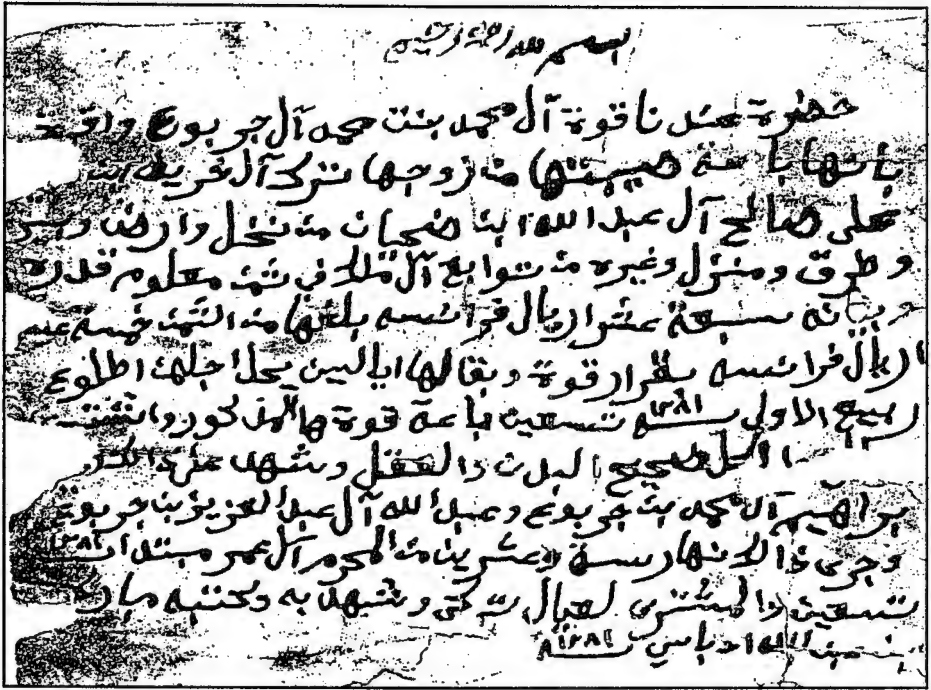 بسم الله الرحمن الرحيم
حظرة عندنا قوة آل محمد بنت محمد آل جربوع واقرة
بانها باعة صيبتها من زوجها تركي آل
على صالح آل عبد الله ابن ضحيان من نخل وارض وبير
وطرق ومنزل وغيره من توابع آل ملا في ثمن معلوم قدره
وبيانه سبعة عشرا ريال فرانسه بلغها من الثمن خمسة عشر
اريال فرانسه بقرار قوة وبقالها اريالين يحل اجلهن اطلوع
ربيع الاولى سنة ١٢٨١ تسعين باعة قوة هالمذكور وانثبتت
الحل صحيح البدن ذا لعقل وشهد على ذالك
براهيم آل محمد بن جربوع وعبد الله آل عبد العزيز بن جربوع
وجرى ذالا نهار ستة وعشرين من المحرم آل عمر مبتدا ١٢٨١
تسعين ذا لمشترى لعيال تركي وشهد به وكتبه مبارك
بن عبد الله ادباسي سنة ١٢٨١